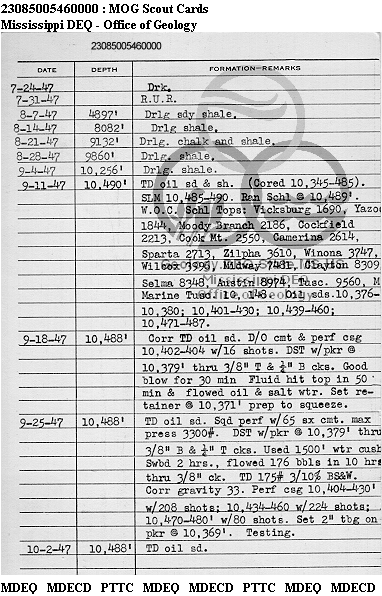 23085005460000 : MOG Scout Cards
Mississippi DEQ - Office of Geology
23085005460000
DATE DEPTH FORMATION—REMARKS
7-24-47 Drk.
7-31-47 R.U.R.
8-7-47 4897' Drlg sdy shale.
8-14-47 8082' Drlg shale.
8-21-47 9132' Drlg. chalk and shale.
8-28-47 9860' Drlg. shale.
9-4-47 10,256' Drlg. shale.
9-11-47 10,490' TD oil sd & sh. (Cored 10,345-485).
SLM 10,485-490. Ran Schl @ 10,489'.
W.O.C. Schl Tops: Vicksburg 1690, Yazoo
1844, Moody Branch 2186, Cockfield
2213, Cook Mt. 2550, Camerina 2614,
Sparta 2713, Zilpha 3610, Winona 3747,
Wilcox 3996, Midway 7481, Clayton 8309
Selma 8348, Austin 8974, Tusc. 9560, M
Marine Tusc. 10, 148. Oil sds.10,376-
10,380; 10,401-430; 10,439-460;
10,471-487.
9-18-47 10,488' Corr TD oil sd. D/O cmt & perf csg
10,402-404 w/16 shots. DST w/pkr @
10,379' thru 3/8" T & ¼" B cks. Good
blow for 30 min Fluid hit top in 50
min & flowed oil & salt wtr. Set re-
tainer @ 10,371' prep to squeeze.
9-25-47 10,488' TD oil sd. Sqd perf w/65 sx cmt. max
press 3300#. DST w/pkr @ 10,379' thru
3/8" B & ¼" T cks. Used 1500' wtr cush
Swbd 2 hrs., flowed 176 bbls in 10 hrs
thru 3/8" ck. TD 175# 3/10% BS&W.
Corr gravity 33. Perf csg 10,404-430'
w/208 shots; 10,434-460 w/224 shots;
10,470-480' w/80 shots. Set 2" tbg on
pkr @ 10,369'. Testing.
10-2-47 10,488' TD oil sd.
MDEQ MDECD PTTC MDEQ MDECD PTTC MDEQ MDECD